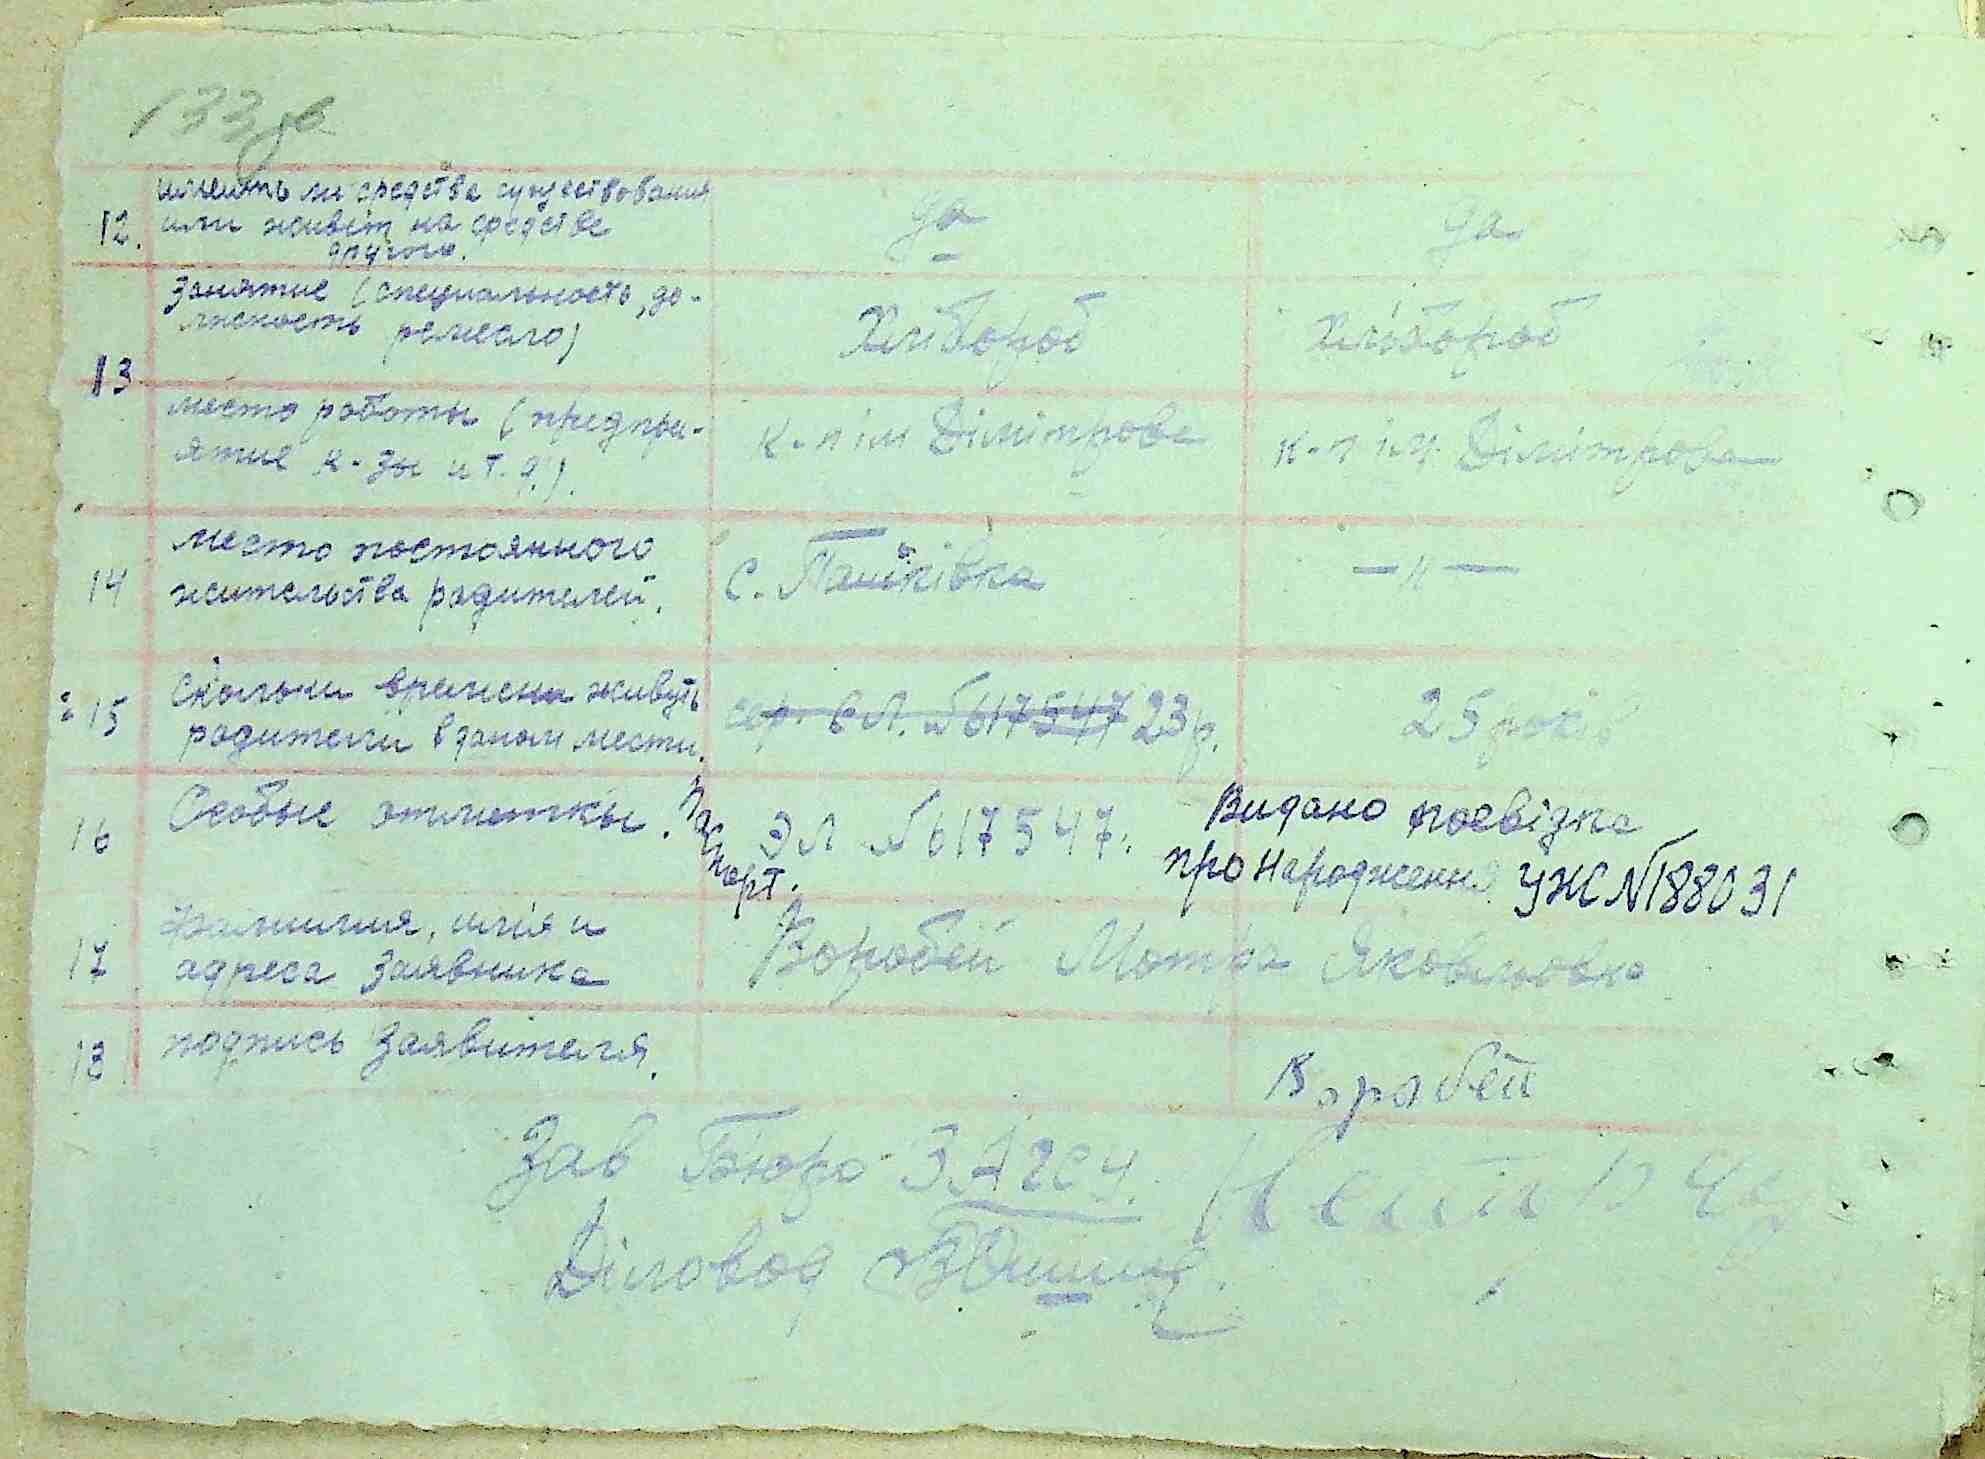 133 зв
12. имеить ли средства существования да да
или живёт на средстве
другого.
13 Занятие (специальность, до- Хлібороб Хлібороб
лжность ремесло)
место работы (предпри- к-п ім Дімітрова к-п ім. Дімітрова
ятие к-зы и т.д.).
14 место постоянного с. Пашківка — " —
жительства родителей.
15 сколько времени живуть сер. ЄЛ. №617547 23 р. 25 років
родители в даном мести.
16 Особые отметки. паспорт. ЭЛ №617547. Видано посвідка
про народження УЖ №188031
17 фамилия, имя и Воробей Мотря Яковльовна
адреса заявника
18 подпись заявителя. Воробей
Зав Бюро ЗАГСу.
Діловод